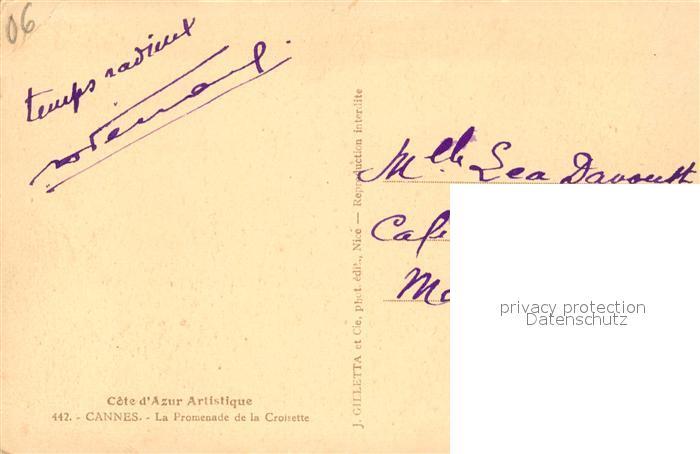 06
temps radieux
Mlle Lea Davoust
Cafe
Côte d'Azur Artistique
442. - CANNES. - La Promenade de la Croisette
J. GILLETTA et Cie, phot. édit., Nice — Reproduction interdite
privacy protection
Datenschutz